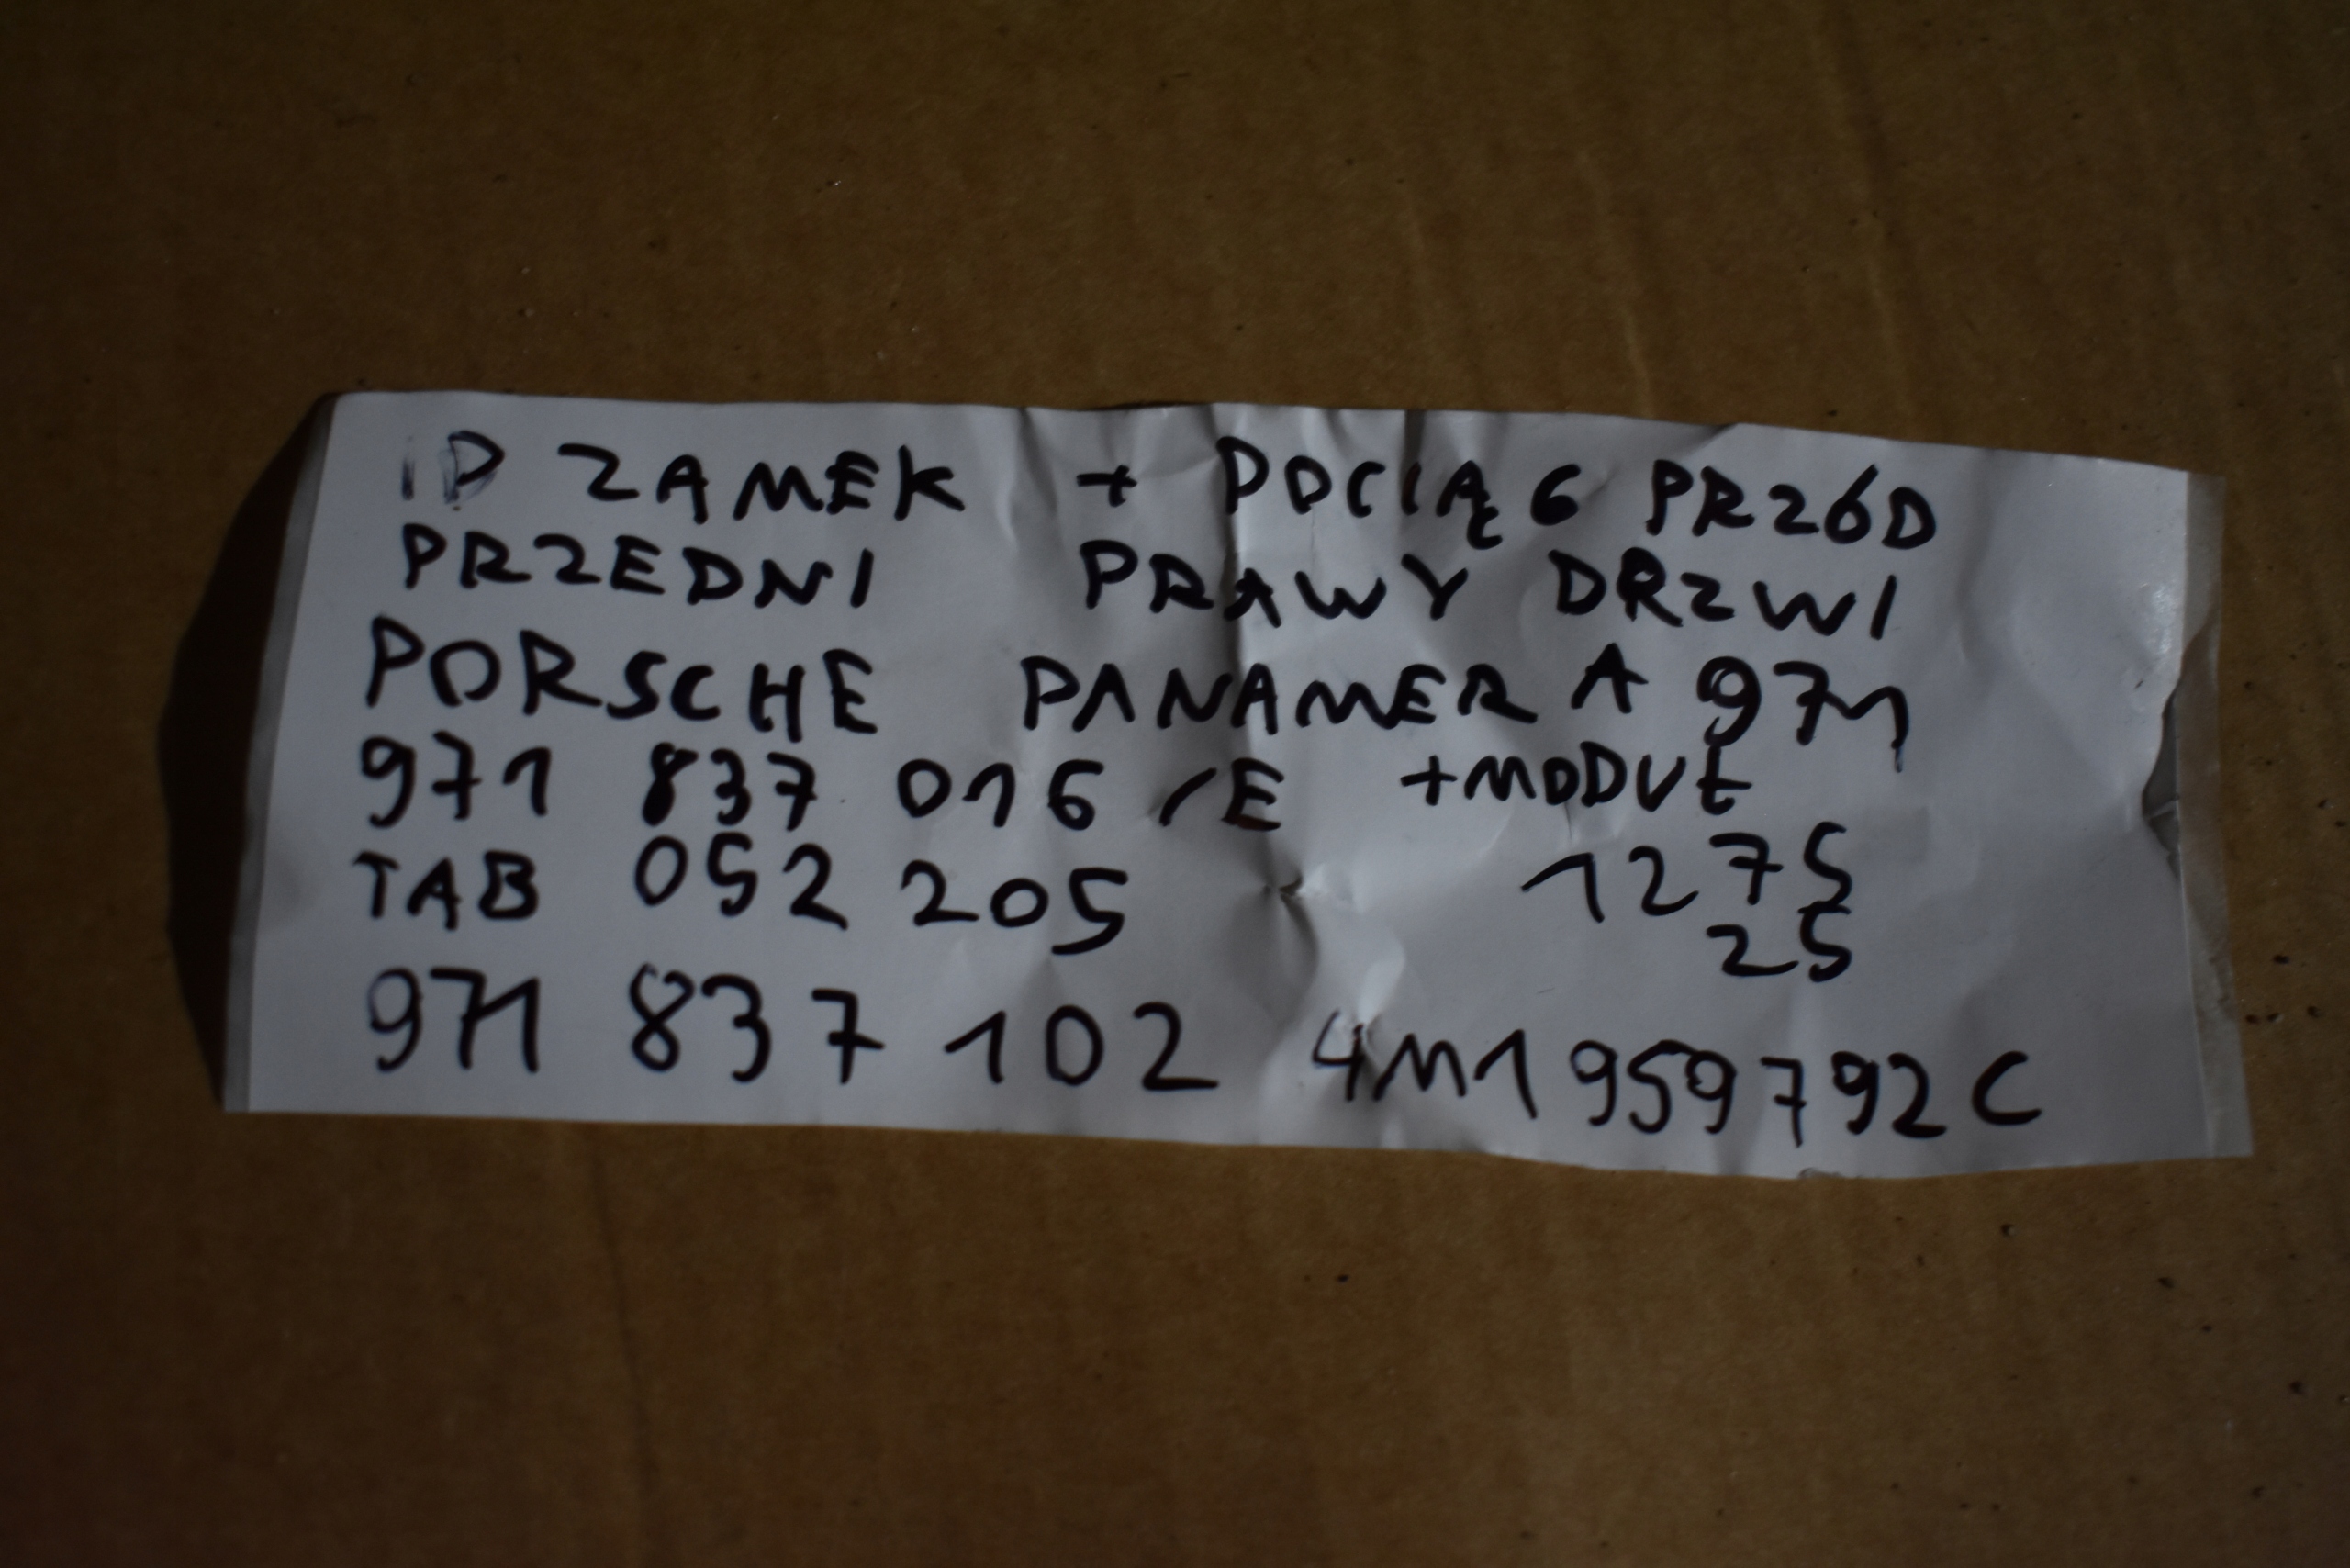 ID ZAMEK + POCIĄG PRZÓD
PRZEDNI PRAWY DRZWI
PORSCHE PANAMERA 971
971 837 016 /E +MODUŁ
TAB 052 205 1275
25
971 837 102 4M1959792C